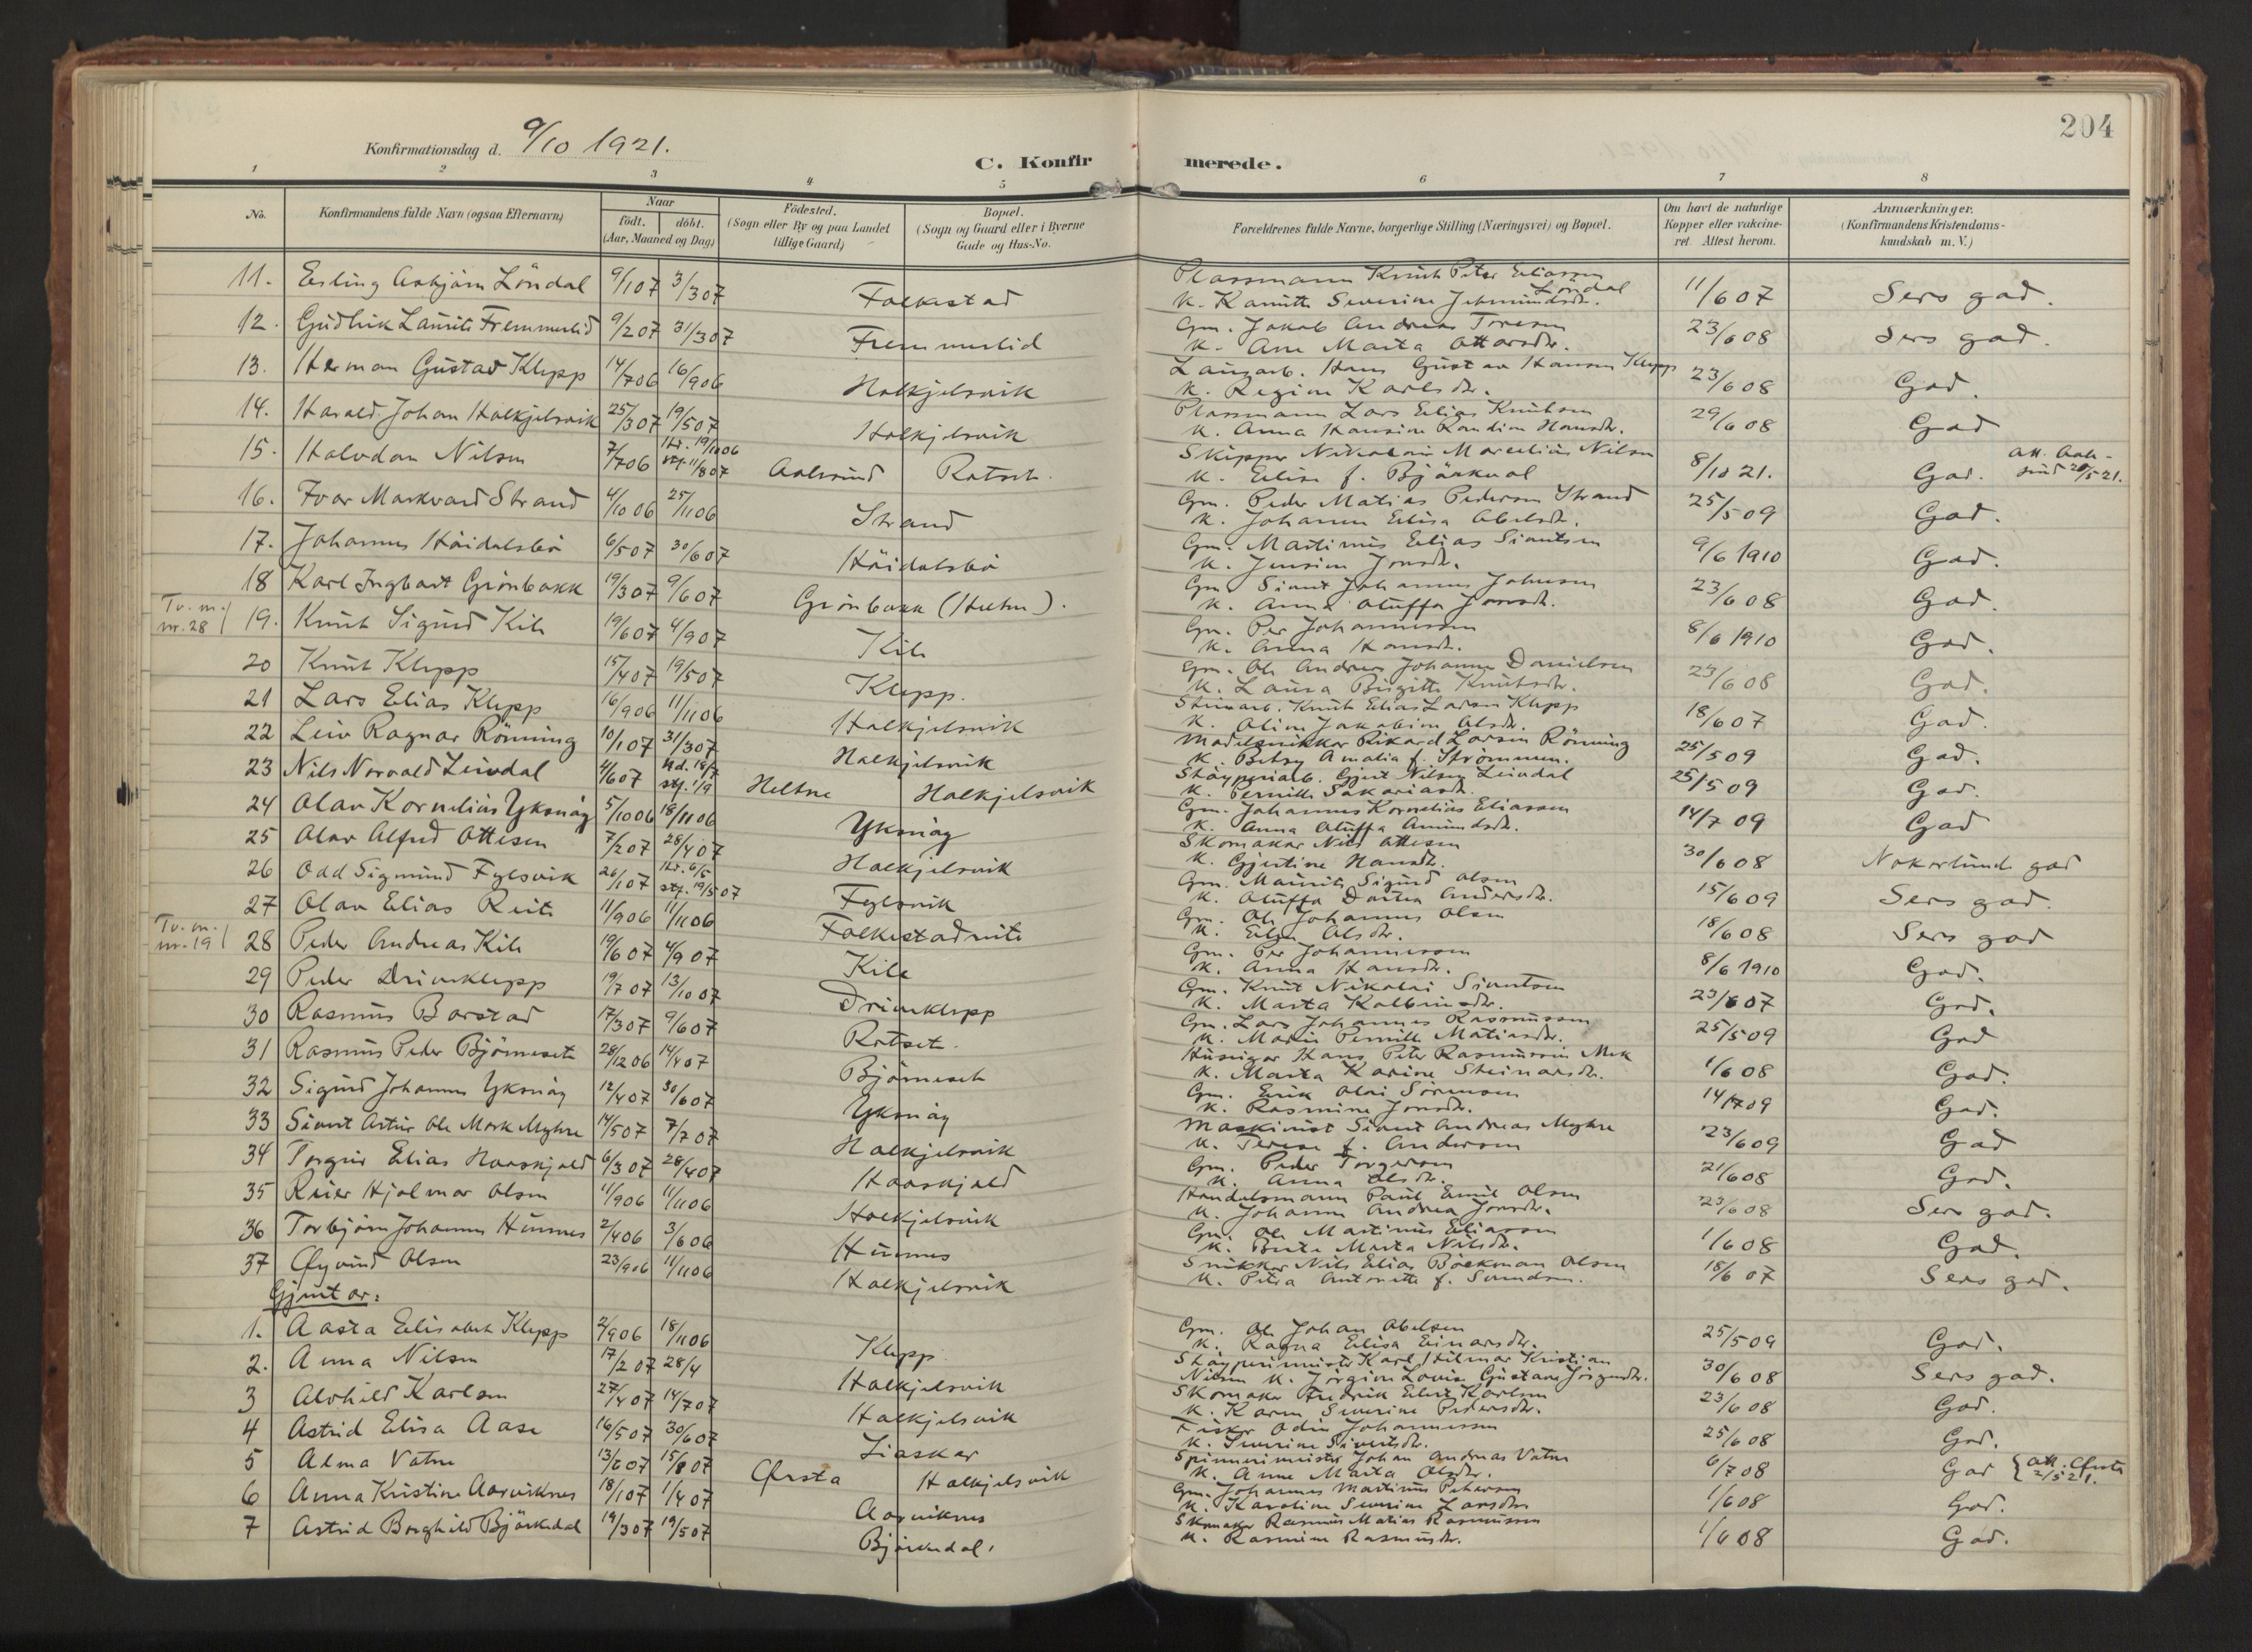 204
Konfirmationsdag d. 9/10 1921.
C. Konfirmerede.
1 2 3 4 5 6 7 8
No. Konfirmandens fulde Navn (ogsaa Efternavn) Naar født. døbt. (Aar, Maaned og Dag) Fødested. (Sogn eller By og paa Landet tillige Gaard) Bopæl. (Sogn og Gaard eller i Byerne Gade og Hus-No. Forældrenes fulde Navne, borgerlige Stilling (Næringsvei) og Bopæl. Om havt de naturlige Kopper eller vakcineret. Attest herom. Anmærkninger. (Konfirmandens Kristendomskundskab m. V.)
11. Erling Asbjørn Löndal 9/1 07 3/3 07 Folkestad Plassmann Knut Peter Eliassen Löndal 11/6 07 Sers god.
12. Gudleik Laurits Fremmerlid 9/2 07 31/3 07 Fremmerlid Gm. Jakob Andreas Toresen K. Ane Marta Ottarsdr. 23/6 08 Sers god.
13. Herman Gustav Klepp 14/7 06 16/9 06 Halkjelsvik Hans Gustav Hansen Klepp K. Regine Karlsdr. 23/6 08 God.
14. Harald Johan Halkjelsvik 25/3 07 19/5 07 Halkjelsvik Plassmann Lars Elias Knutsen K. Anna Hansine Hansdr. 29/6 08 God
15. Halvdan Nilsen 7/7 06 11/8 07 Aalesund Rotset. Skipper Nikolai Marelius Nilsen K. Elise f. Bjørkvol 8/10 21. God. Att. Aalesund 20/5 21.
16. Ivar Markvard Strand 4/10 06 25/11 06 Strand Gm. Peder Matias Pedersen Strand K. Johanne Elisa Abelsdr. 25/5 09 God.
17. Johannes Höidalsbö 6/5 07 30/6 07 Höidalsbö Gm. Martinus Elias Sivertsen K. Jensine Jonsdr. 9/6 1910 God.
18 Karl Ingbart Grönbakk 19/3 07 9/6 07 Grönbakk Gm Sivert Johannes Johnsen K. Anna Oluffa Jonsdr. 23/6 08 God.
Tv. m. nr. 28
19. Knut Sigurd Kile 19/6 07 4/9 07 Kile Gm. Per Johannessen K. Anna Hansdr. 8/6 1910 God.
20 Knut Klepp 15/4 07 19/5 07 Klepp. Gm. Ole Andreas Johannes Danielsen K. Laura Birgitte Knutsdr. 23/6 08 God.
21 Lars Elias Klepp 16/9 06 11/11 06 Halkjelsvik Knut Elias Larsen Klepp K. Oline Jakobine Olsdr. 18/6 07 God.
22 Leiv Ragnar Rönning 10/1 07 31/3 07 Halkjelsvik Modelsnikker Rikard Larsen Rönning K. Betsy Amalia f. Strömmen. 25/5 09 God.
23 Nils Norvald Leivdal 4/6 07 Hd. 18/7 stf. 1/9 Heltne Halkjelsvik Støyperiarb. Gjert Nilsen Leivdal K. Pernille Sakariasdr. 25/5 09 God.
24 Olav Kornelius Yksnöy 5/10 06 18/11 06 Yksnöy Gm. Johannes Kornelius Eliassen K. Anna Oluffa Amundsdr. 14/7 09 God
25 Olav Alfred Ottesen 7/2 07 28/4 07 Halkjelsvik Skomakar Nils Ottesen K. Gjertine Hansdr. 30/6 08 Nokorlunde god
26 Odd Sigmund Fylsvik 26/1 07 stf. 19/5 07 Fylsvik Gm. Maurits Sigurd Olsen K. Oluffa Dortea Andersdr. 15/6 09 Sers god.
27 Olav Elias Reite 11/9 06 11/11 06 Folkestadreite Gm. Ole Johannes Olsen K. Elen Olsdr. 18/6 08 Sers god
Tv. m. nr. 19
28 Peder Andreas Kile 19/6 07 4/9 07 Kile Gm. Per Johannessen K. Anna Hansdr. 8/6 1910 God.
29 Peder Driveklepp 19/7 07 13/10 07 Driveklepp Gm. Knut Nikolai Sivertsen K. Marta 23/6 07 God.
30 Rasmus Barstad 17/3 07 9/6 07 Rotset. Gm. Lars Johannes Rasmussen K. Marie Pernille Matiasdr. 25/5 09 God
31 Rasmus Peder Björneset 28/12 06 14/4 07 Björneset Huseigar Hans Peter Rasmussen K. Marta Karine Steinarsdr. 1/6 08 God.
32 Sigurd Johannes Yksnöy 12/4 07 30/6 07 Yksnöy Gm. Erik Olai Sörensen K. Rasmine Jonsdr. 14/7 09 God.
33 Sivert Artur Ole Mork Myhre 14/5 07 7/7 07 Halkjelsvik Maskinist Sivert Andreas Myhre K. Terese f. Andersen 23/6 09 God
34 Torgeir Elias Haaskjold 6/3 07 28/4 07 Haaskjold Gm. Peder Torgersen K. Anna Olsdr. 21/6 08 God.
35 Reier Hjalmar Olsen 11/9 06 11/11 06 Halkjelsvik Handelsmann Paul Emil Olsen K. Johanne Andrea Jonsdr. 23/6 08 Sers god.
36 Torbjørn Johannes Hunnes 2/4 06 3/6 06 Hunnes Gm. Ole Martinus Eliassen K. Berte Marta Nilsdr. 1/6 08 God.
37 Øyvind Olsen 23/9 06 11/11 06 Halkjelsvik Snikkar Nils Elias Boekman Olsen K. Petra Antonette f. Svendsen. 18/6 07 Sers god.
Gjentor:
1. Aasta Elisabet Klepp 2/9 06 18/11 06 Klepp Gm. Ole Johan Abelsen K. Ragna Elisa Einarsdr. 25/5 09 God.
2. Anna Nilsen 17/2 07 28/4 Halkjelsvik Støyperimeister Karl Hilmar Kristian Nilsen K. Jörgine Lovise Gustava Jörgensdr. 30/6 08 Sers god.
3 Alvhild Karlsen 27/4 07 14/7 07 Halkjelsvik Skomaker Fredrik Karlsen K. Karen Severine Pedersdr. 23/6 08 God.
4 Astrid Elisa Aase 16/5 07 30/6 07 Liaskar Fisker Odin Johannessen K. Severine Sivertsdr. 25/6 08 God.
5 Alma Vatne 13/6 07 15/8 07 Ørsta Halkjelsvik Spinnerimeister Johan Andreas Vatne K. Anne Marta Olsdr. 6/7 08 God Att. Ørsta 2/5 21.
6 Anna Kristine Aarviknes 18/1 07 1/4 07 Aarviknes Gm. Johannes Martinus Petersen K. Karoline Severine Larsdtr 1/6 08 God.
7 Astrid Borghild Bjørkedal 19/3 07 19/5 07 Bjørkedal. Skomaker Rasmus Matias Rasmussen K. Rasmine Rasmusdr. 1/6 08 God.